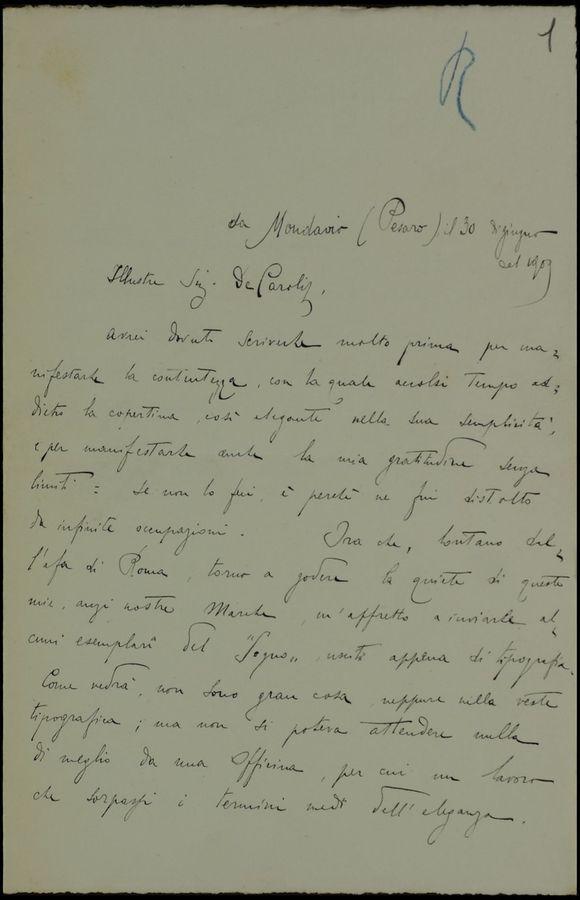 1
R
da Mondavio (Pesaro) il 30 di giugno
del 1909
Illustre Sig. De Carolis,
avrei dovuto scriverle molto prima per ma=
nifestarle la contentezza, con la quale accolsi tempo ad=
dietro la copertina, così elegante nella sua semplicità,
e per manifestarle anche la mia gratitudine senza
limiti = Se non lo feci, è perchè ne fui distolto
da infinite occupazioni. Ora che, lontano dal=
l'afa di Roma, torno a godere la quiete di queste
mie, anzi nostre Marche, m'affretto a inviarle al=
cuni esemplari del "Sogno", usciti appena di tipografia.
Come vedrà, non sono gran cosa, neppure nella veste
tipografica; ma non si poteva attendere nulla
di meglio da una Officina, per cui un lavoro
che sorpassi i termini medi dell'eleganza.